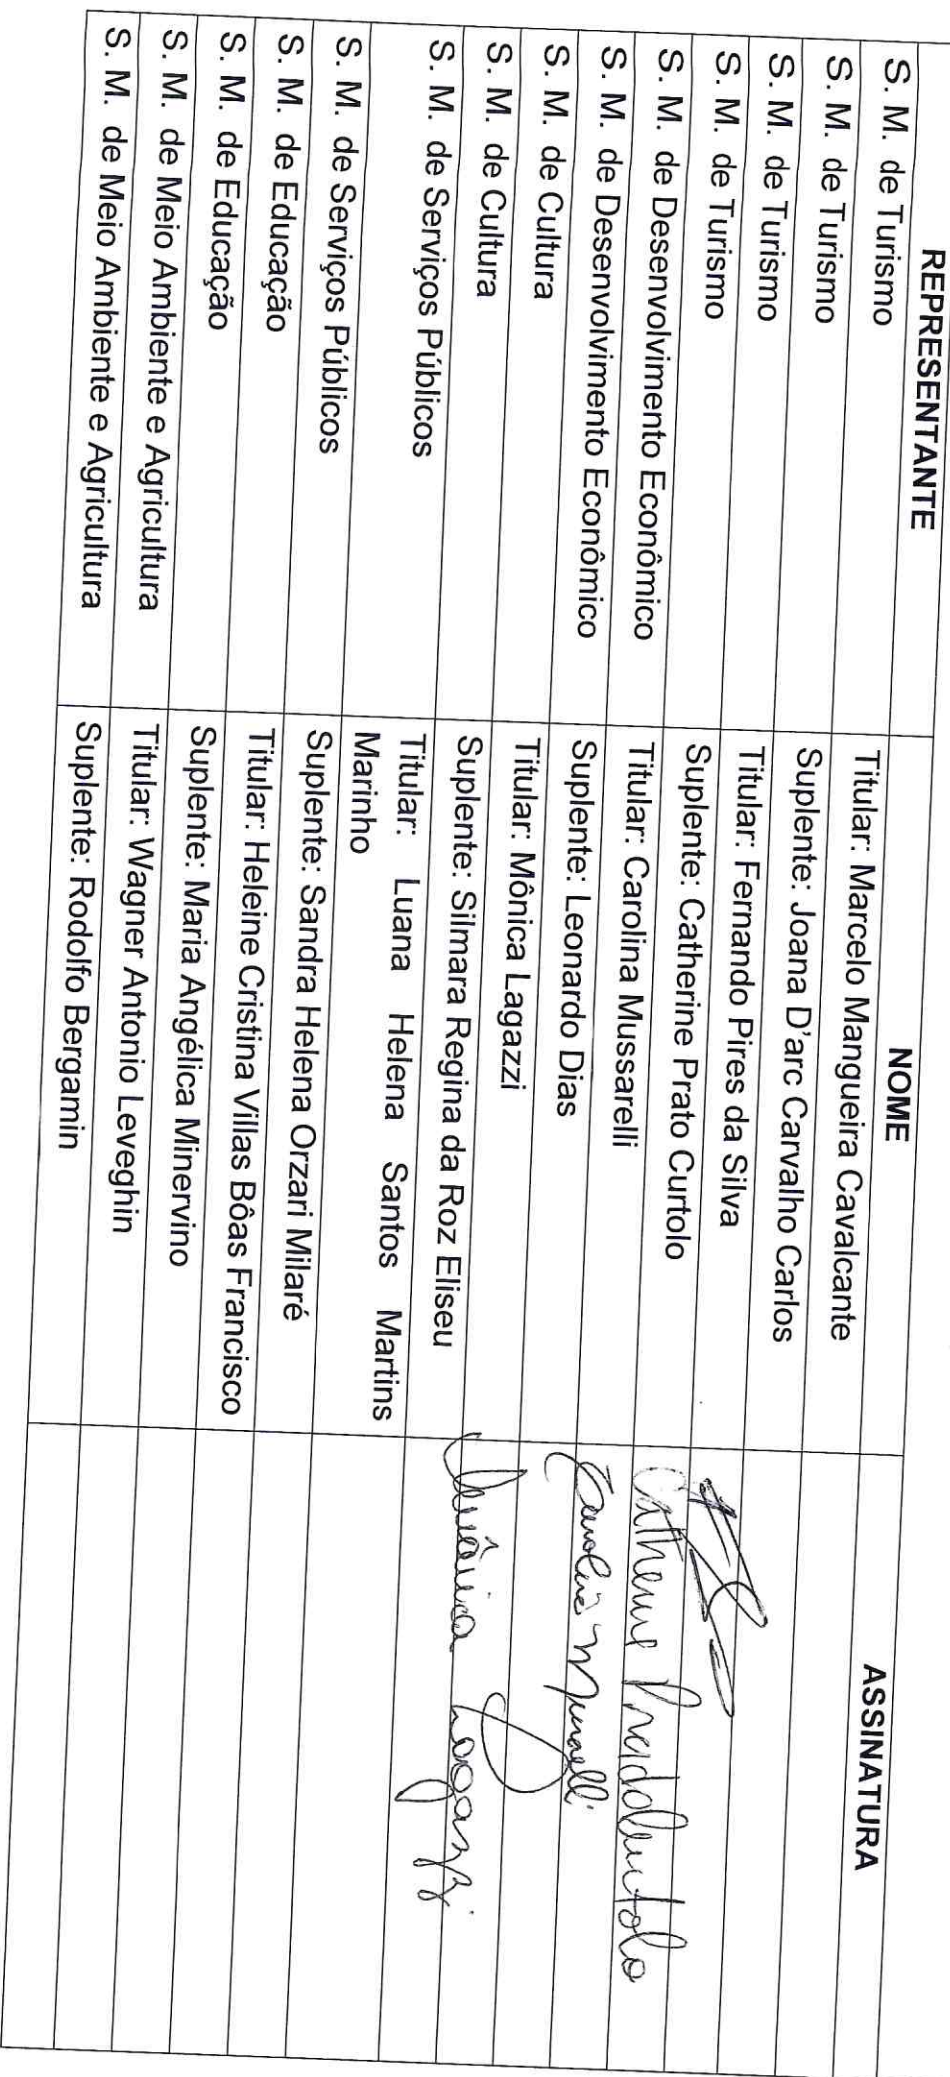 REPRESENTANTE NOME ASSINATURA
S. M. de Turismo Titular: Marcelo Mangueira Cavalcante
S. M. de Turismo Suplente: Joana D'arc Carvalho Carlos
S. M. de Turismo Titular: Fernando Pires da Silva
S. M. de Turismo Suplente: Catherine Prato Curtolo
S. M. de Desenvolvimento Econômico Titular: Carolina Mussarelli
S. M. de Desenvolvimento Econômico Suplente: Leonardo Dias
S. M. de Cultura Titular: Mônica Lagazzi Mônica Lagazzi
S. M. de Cultura Suplente: Silmara Regina da Roz Eliseu
S. M. de Serviços Públicos Titular: Luana Helena Santos Martins
Marinho
S. M. de Serviços Públicos Suplente: Sandra Helena Orzari Milaré
S. M. de Educação Titular: Heleine Cristina Villas Bôas Francisco
S. M. de Educação Suplente: Maria Angélica Minervino
S. M. de Meio Ambiente e Agricultura Titular: Wagner Antonio Leveghin
S. M. de Meio Ambiente e Agricultura Suplente: Rodolfo Bergamin